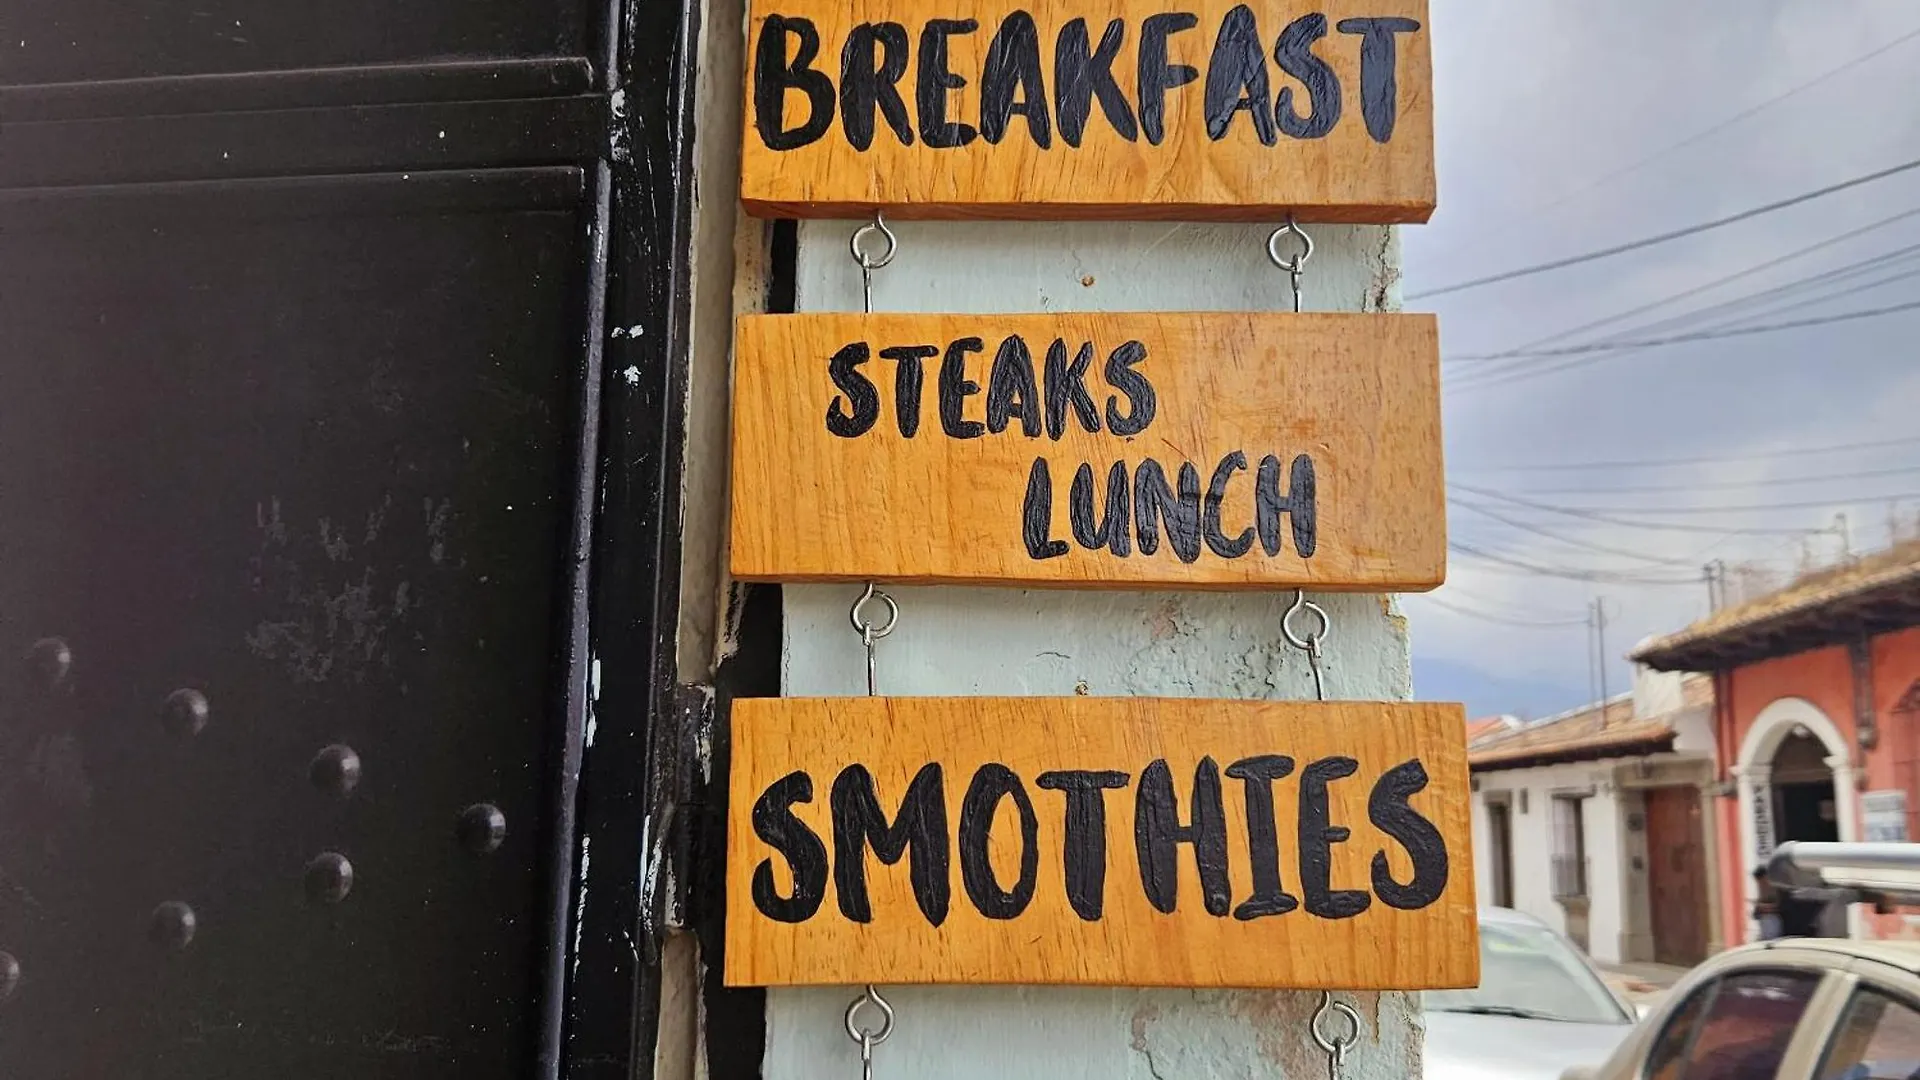 BREAKFAST
STEAKS
LUNCH
SMOTHIES